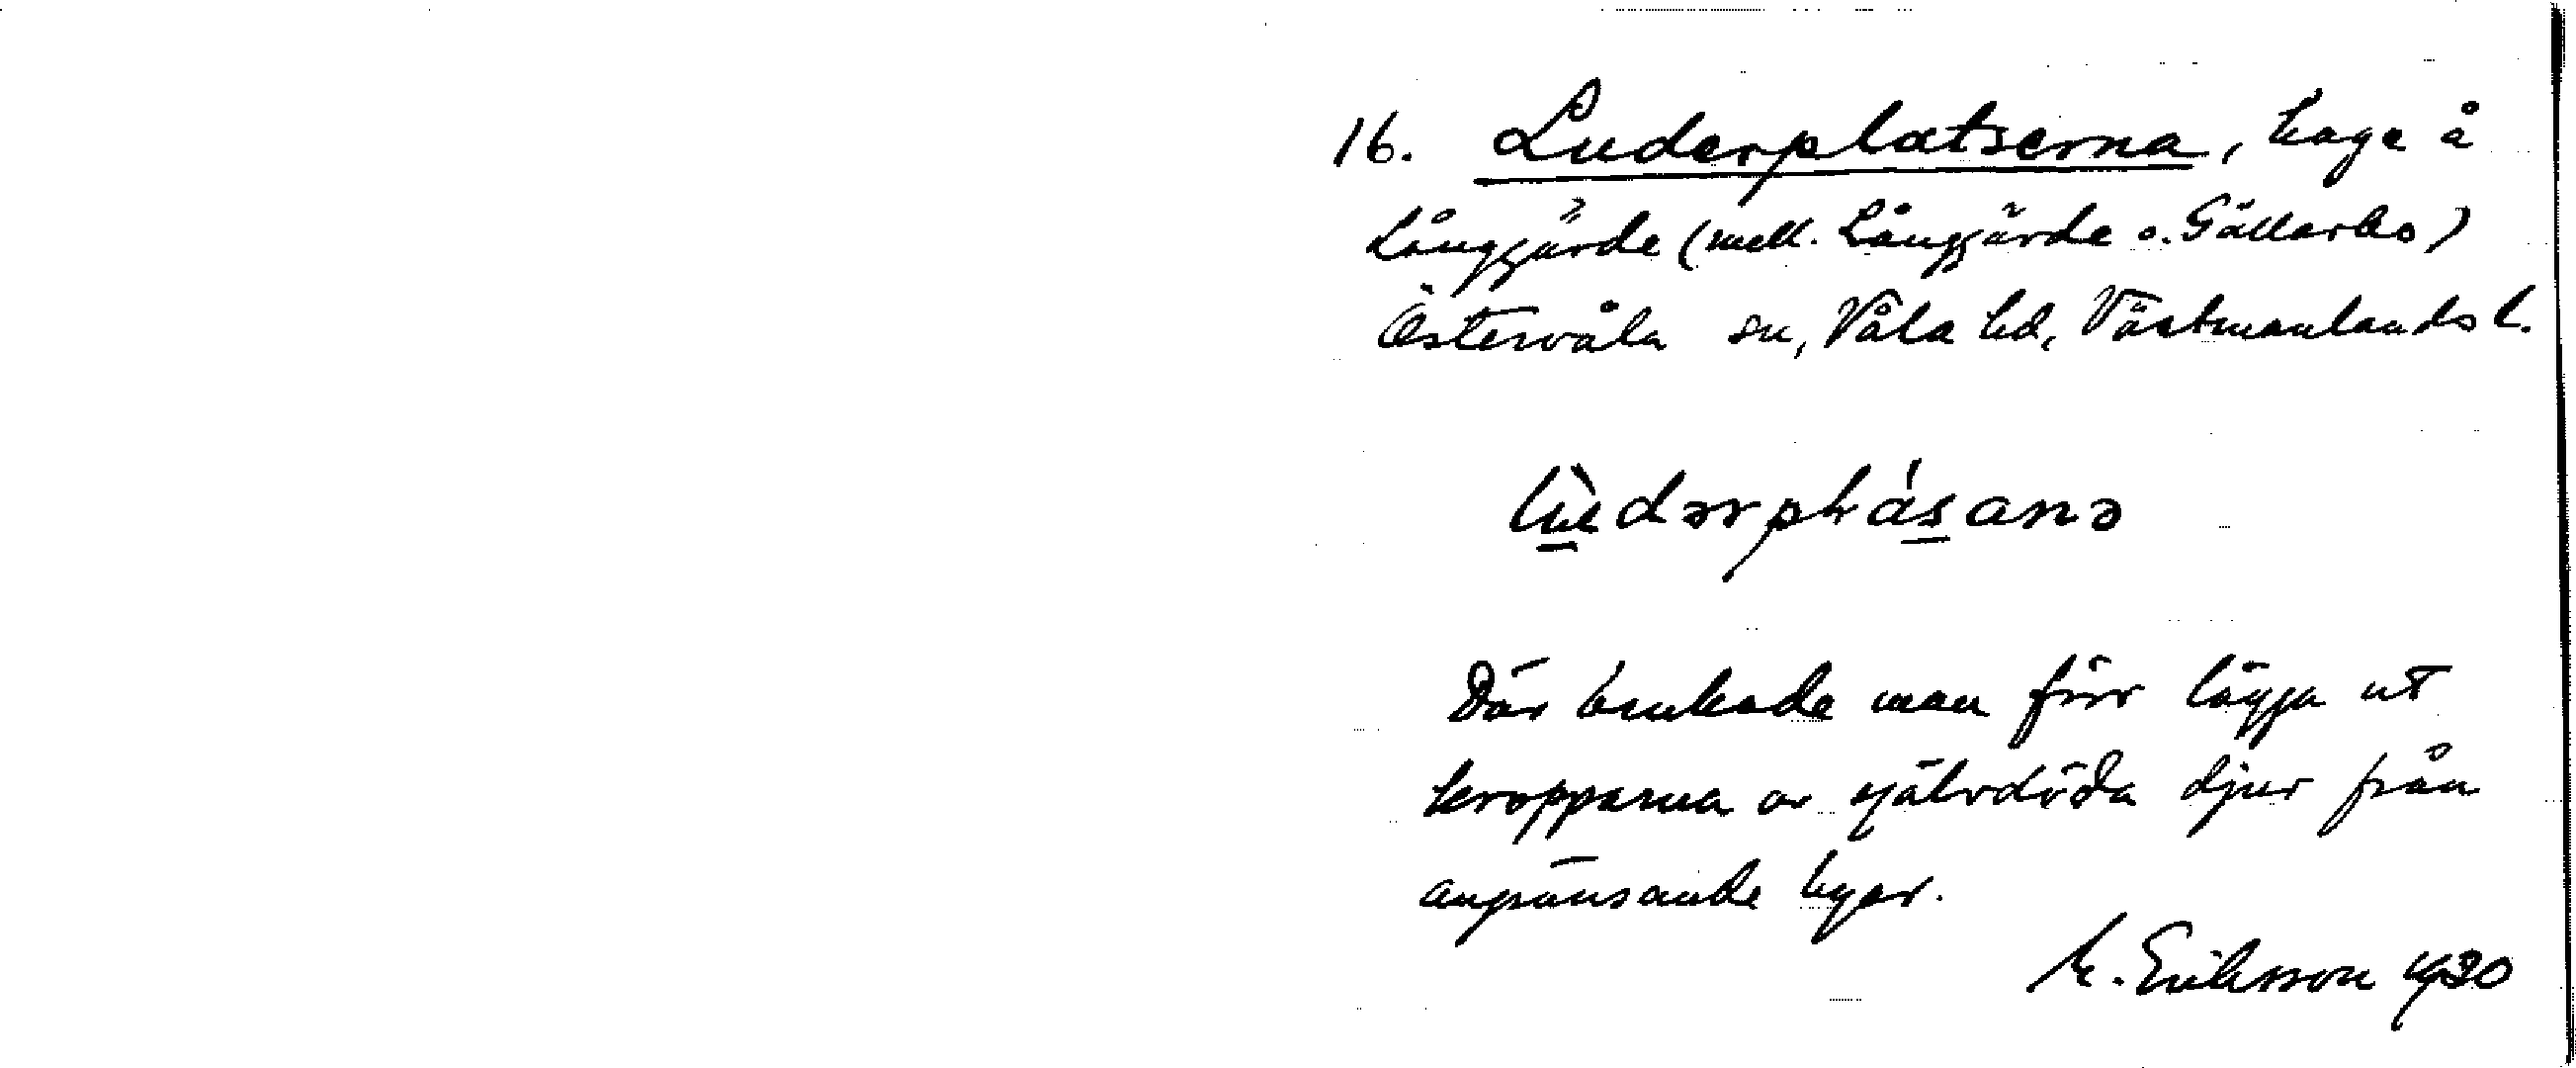 16. Luderplatserna, hage å
Långgärde (mell. Långgärde o. Gällarbo)
Östervåla sn, Våla hd, Västmanlands l.
lùdərplásanə
Där brukade man förr lägga ut
kropparna av självdöda djur från
angränsande byar.
M. Eriksson 1930